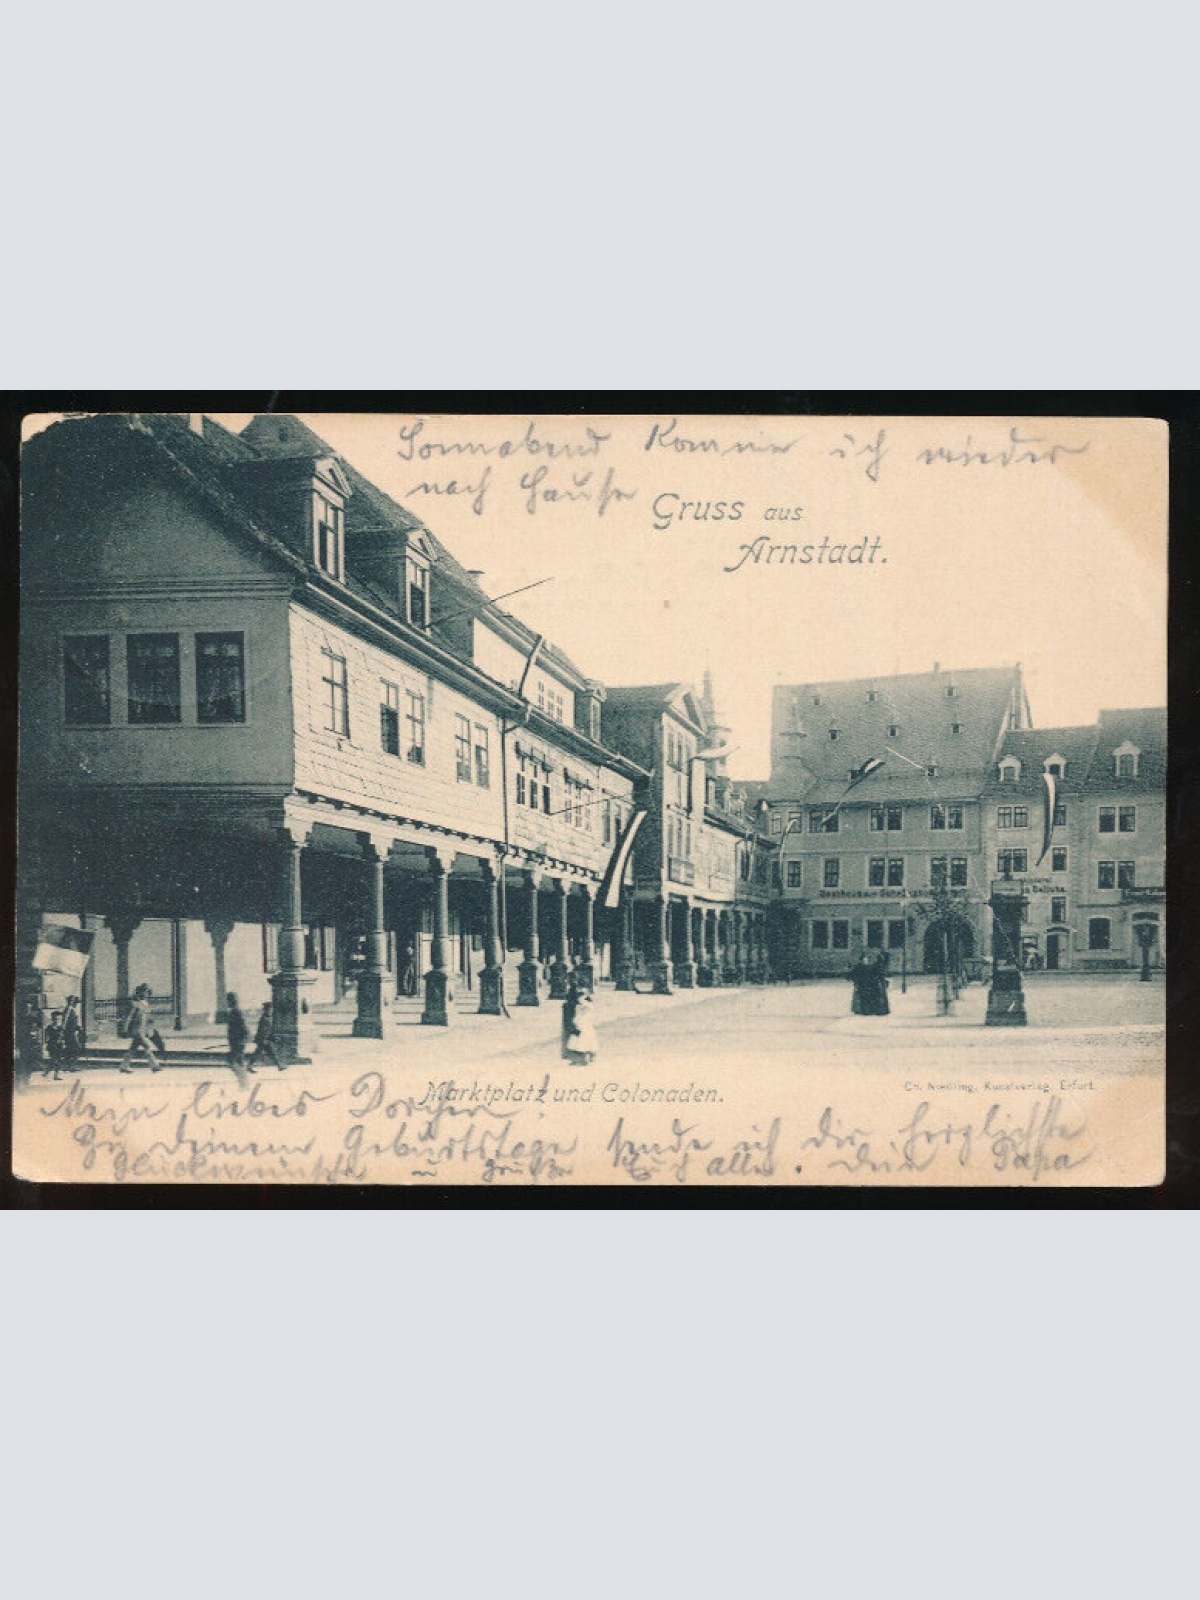 Sonnabend komme ich wieder
nach Hause
Gruss aus
Arnstadt.
Marktplatz und Colonaden.
Mein liebes Dorchen!
Zu deinem Geburtstage sende ich dir herzlichste
Glückwünsche u Grüße Euch allen. Dein Papa